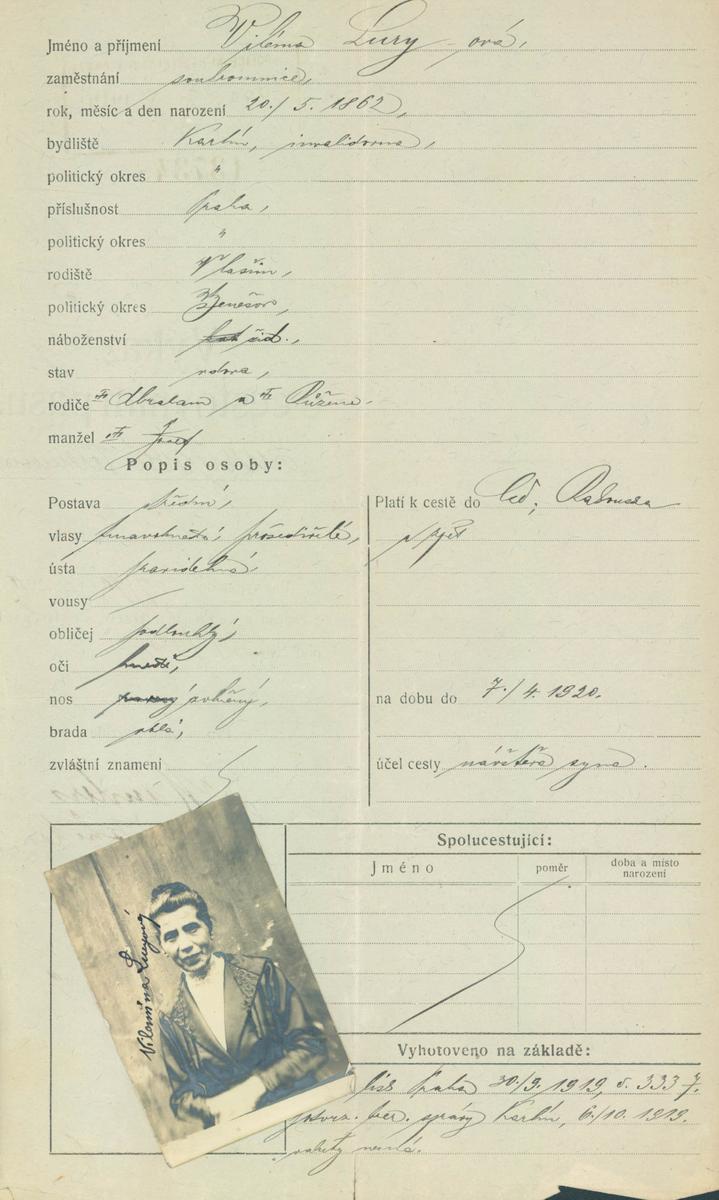 Jméno a příjmení Viléma Lury-ová,
zaměstnání soukromnice,
rok, měsíc a den narození 20./5. 1862,
bydliště Karlín, invalidovna,
politický okres "
příslušnost Praha,
politický okres "
rodiště Vlašim,
politický okres Benešov,
náboženství žid.,
stav vdova,
rodiče Abraham a Růžena.
manžel Josef
Popis osoby:
Postava střední,
vlasy tmavohnědé, prošedivělé,
ústa pravidelná,
vousy
obličej podlouhlý,
oči hnědé,
nos
brada oblá,
zvláštní znamení
Platí k cestě do
a zpět
na dobu do 7./4. 1920.
účel cesty návštěva syna.
Spolucestující:
Jméno poměr doba a místo narození
Vilemína Luryová
Vyhotoveno na základě:
Praha 30/9. 1919, č. 333 7.
potvrz. ber. správy Karlín, 6/10. 1919.
námitky nemá.